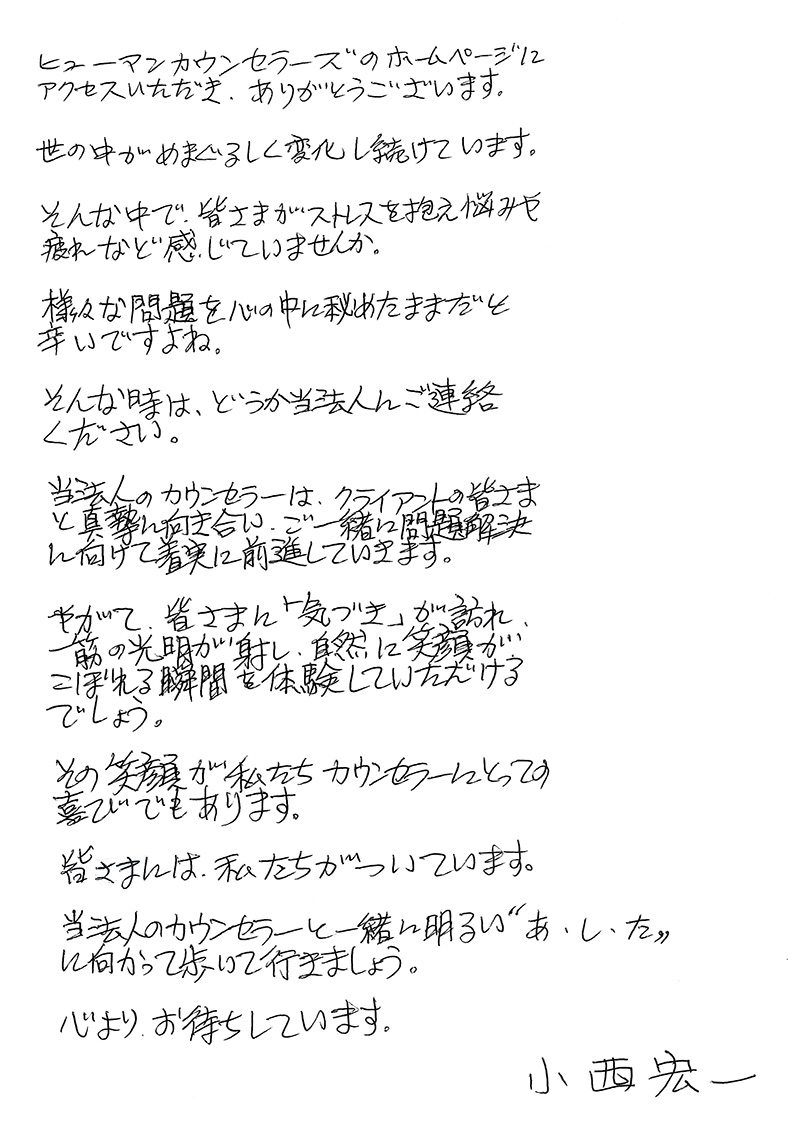 ヒューマンカウンセラーズのホームページに
アクセスいただき、ありがとうございます。
世の中がめまぐるしく変化し続けています。
そんな中で、皆さまがストレスを抱え悩みや
疲れなど感じていませんか。
様々な問題を心の中に秘めたままだと
辛いですよね。
そんな時は、どうか当法人にご連絡
ください。
当法人のカウンセラーは、クライアントの皆さま
と真摯に向き合い、ご一緒に問題解決
に向けて着実に前進していきます。
やがて、皆さまに「気づき」が訪れ、
一筋の光明が射し、自然に笑顔が、
こぼれる瞬間を体験していただける
でしょう。
その笑顔が私たちカウンセラーにとっての
喜びでもあります。
皆さまには、私たちがついています。
当法人のカウンセラーと一緒に明るい“あ・し・た”
に向かって歩いて行きましょう。
心より、お待ちしています。
小西宏一